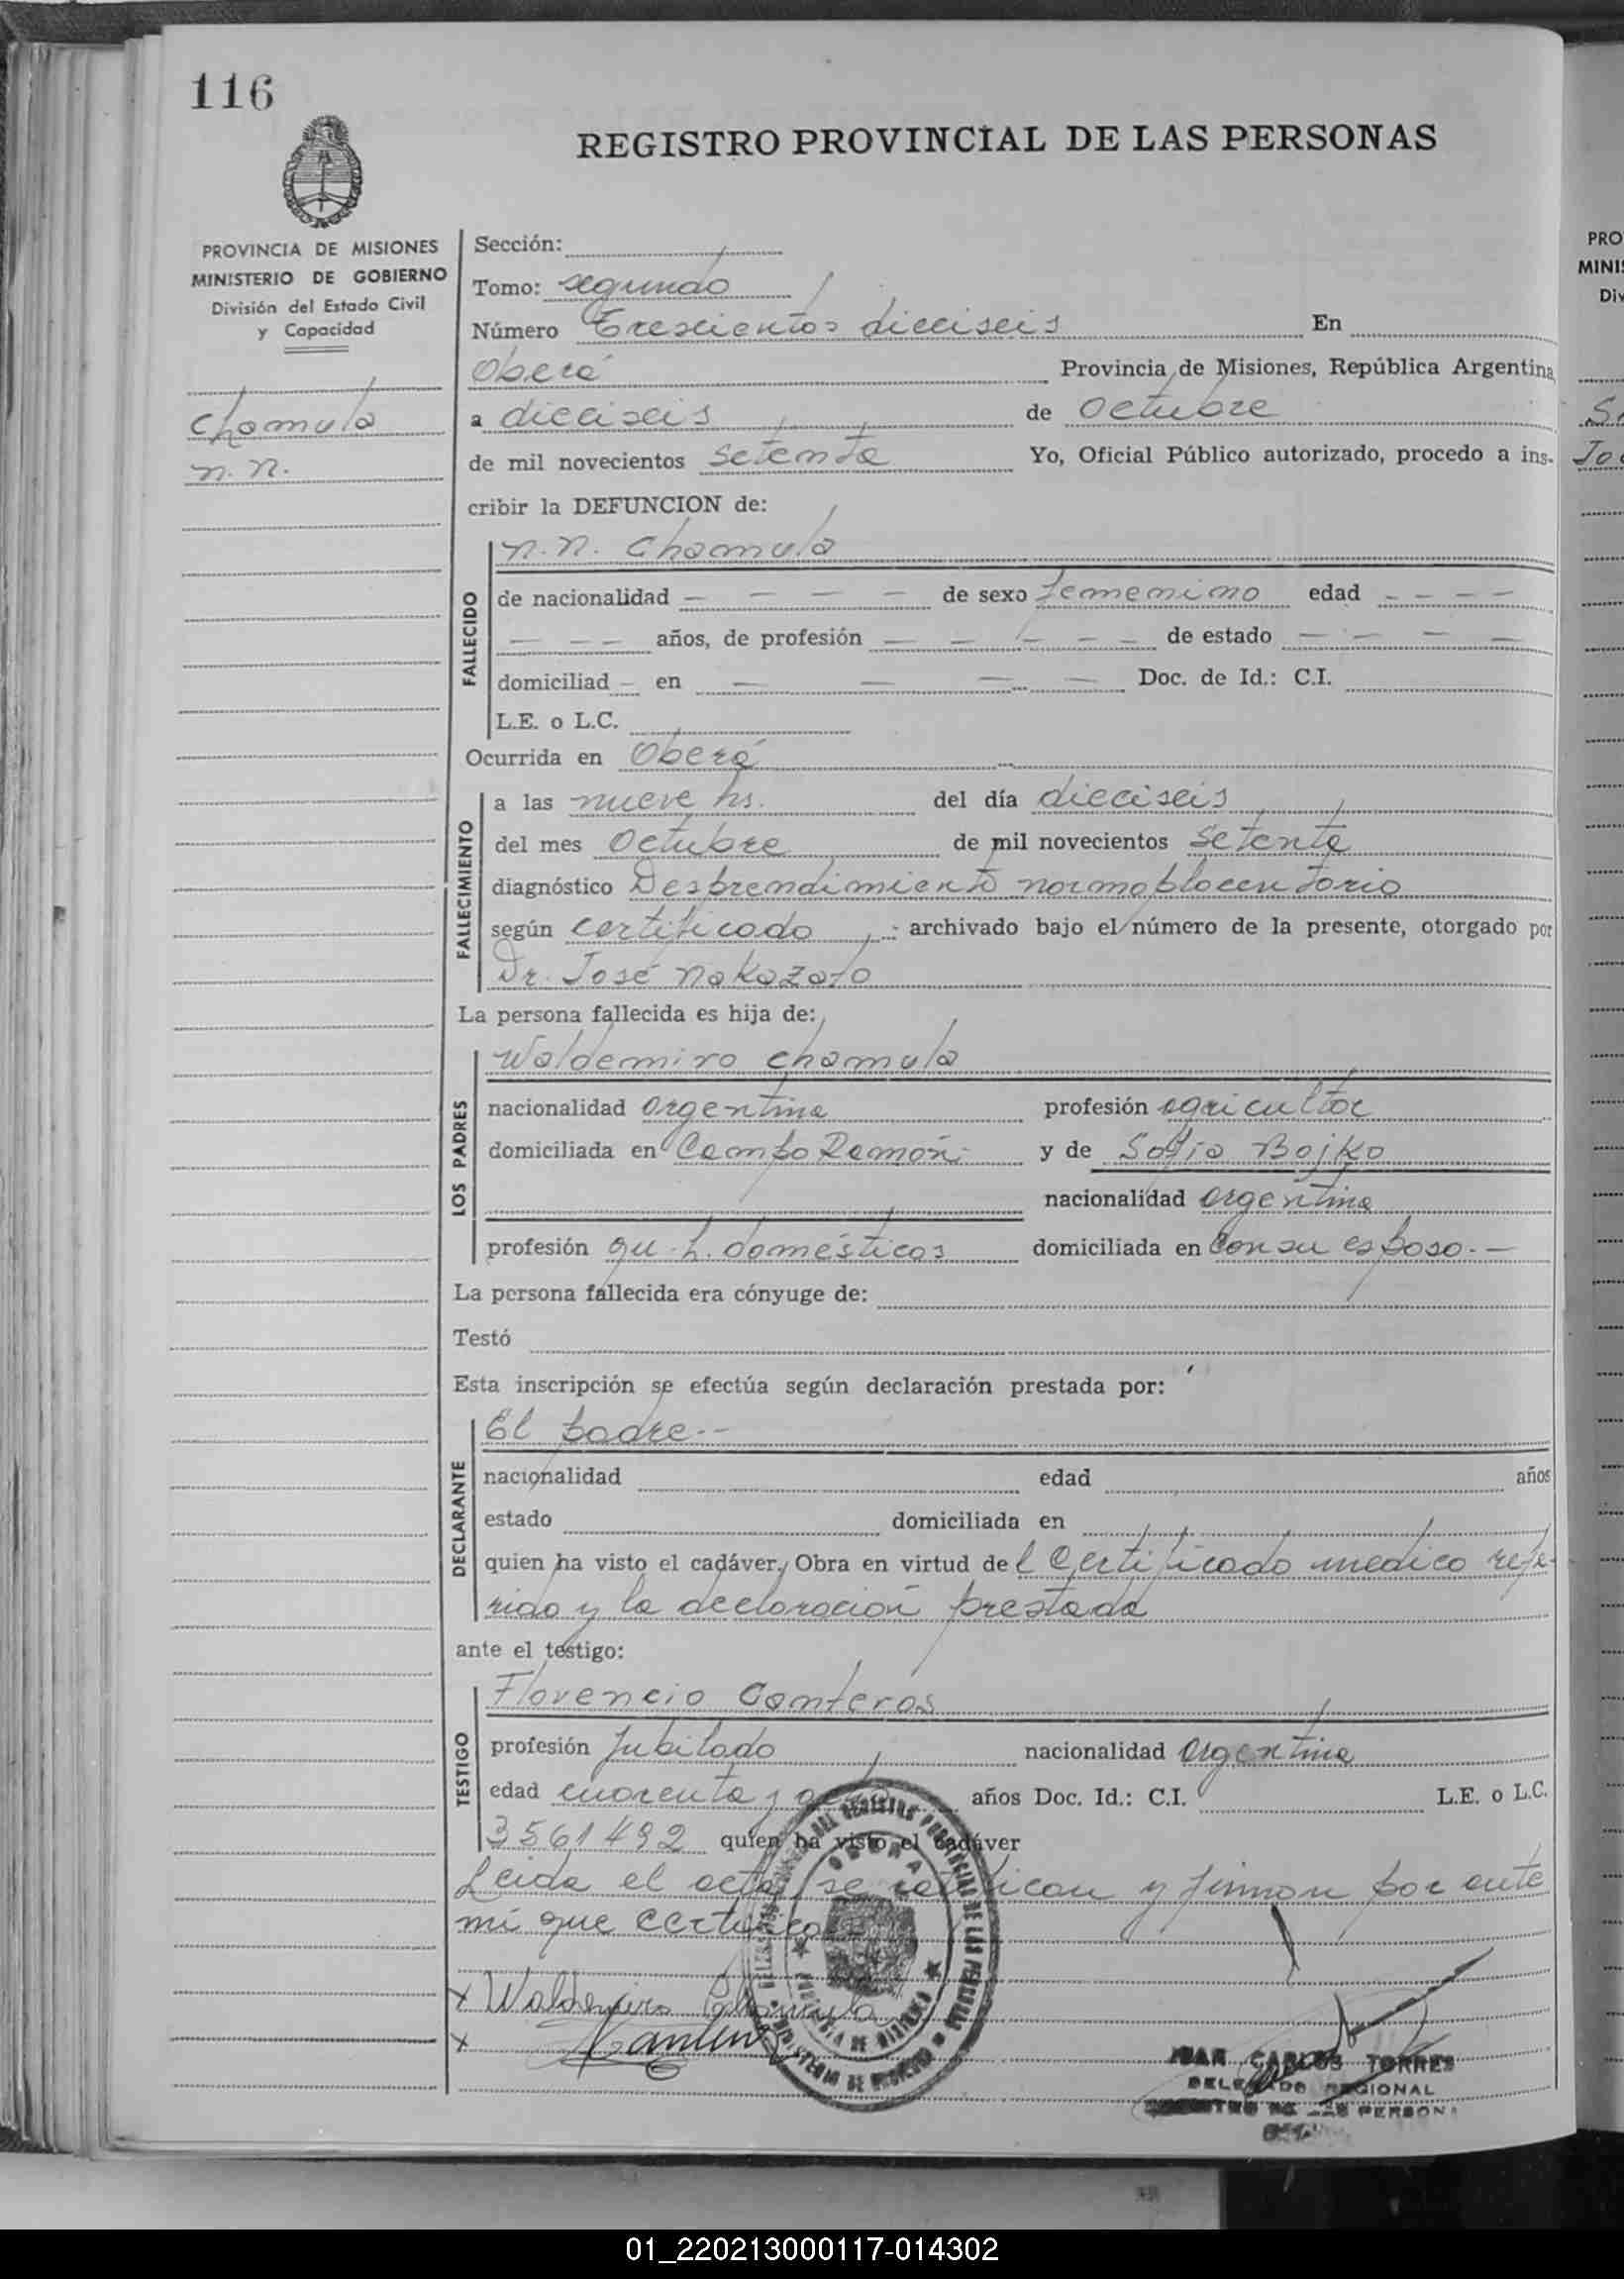 116
REGISTRO PROVINCIAL DE LAS PERSONAS
PROVINCIA DE MISIONES
MINISTERIO DE GOBIERNO
División del Estado Civil
y Capacidad
Chamula
n.n.
Sección:
Tomo: segundo
Número Trescientos dieciseis En
Oberá Provincia de Misiones, República Argentina
a dieciseis de Octubre
de mil novecientos setenta Yo, Oficial Público autorizado, procedo a ins-
cribir la DEFUNCION de:
FALLECIDO
n.n. Chamula
de nacionalidad — — — — de sexo femenino edad — — — —
— — — años, de profesión — — — — — de estado — — — —
domiciliad — en — — — — Doc. de Id.: C.I.
L.E. o L.C.
Ocurrida en Oberá
FALLECIMIENTO
a las nueve hs. del día dieciseis
del mes Octubre de mil novecientos setenta
diagnóstico Desprendimiento normoplacentario
según certificado archivado bajo el número de la presente, otorgado por
Dr. José Nakazato
La persona fallecida es hija de:
LOS PADRES
Waldemiro Chamula
nacionalidad argentina profesión agricultor
domiciliada en Campo Ramón y de Sofia Bojko
nacionalidad argentina
profesión qu. h. domésticos domiciliada en Con su esposo.—
La persona fallecida era cónyuge de:
Testó
Esta inscripción se efectúa según declaración prestada por:
DECLARANTE
El padre.--
nacionalidad edad años
estado domiciliada en
quien ha visto el cadáver. Obra en virtud del Certificado medico refe-
rido y la declaración prestada
ante el testigo:
TESTIGO
Florencio Canteros
profesión Jubilado nacionalidad argentina
edad cuarenta y años Doc. Id.: C.I. L.E. o L.C.
3561492 quien ha visto el cadáver
Leida el acta, se ratifican y firman por ante
mi que certifico
x Waldemiro Chamula
x
JUAN CARLOS TORRES
DELEGADO REGIONAL
PRO
MINIS
Div
01_220213000117-014302